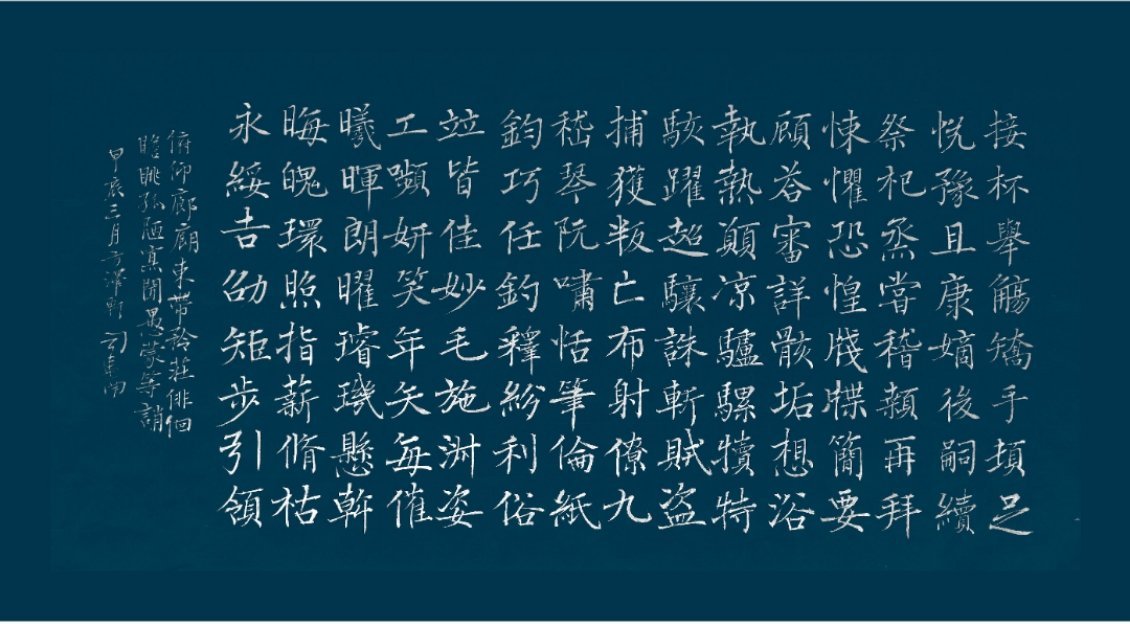 接杯舉觴矯手頓足
悅豫且康嫡後嗣續
祭祀烝嘗稽顙再拜
悚懼恐惶牋牒簡要
顧荅審詳骸垢想浴
執熱願凉驢騾犢特
駭躍超驤誅斬賊盜
捕獲叛亡布射僚九
嵇琴阮嘯恬筆倫紙
鈞巧任釣釋紛利俗
竝皆佳妙毛施淑姿
工嚬妍笑年矢每催
曦暉朗曜璿璣懸斡
晦魄環照指薪脩祜
永綏吉劭矩步引領
俯仰廊廟束帶矜莊俳佪
瞻眺孤陋寡聞愚蒙等誚
甲辰三月方澤軒司馬